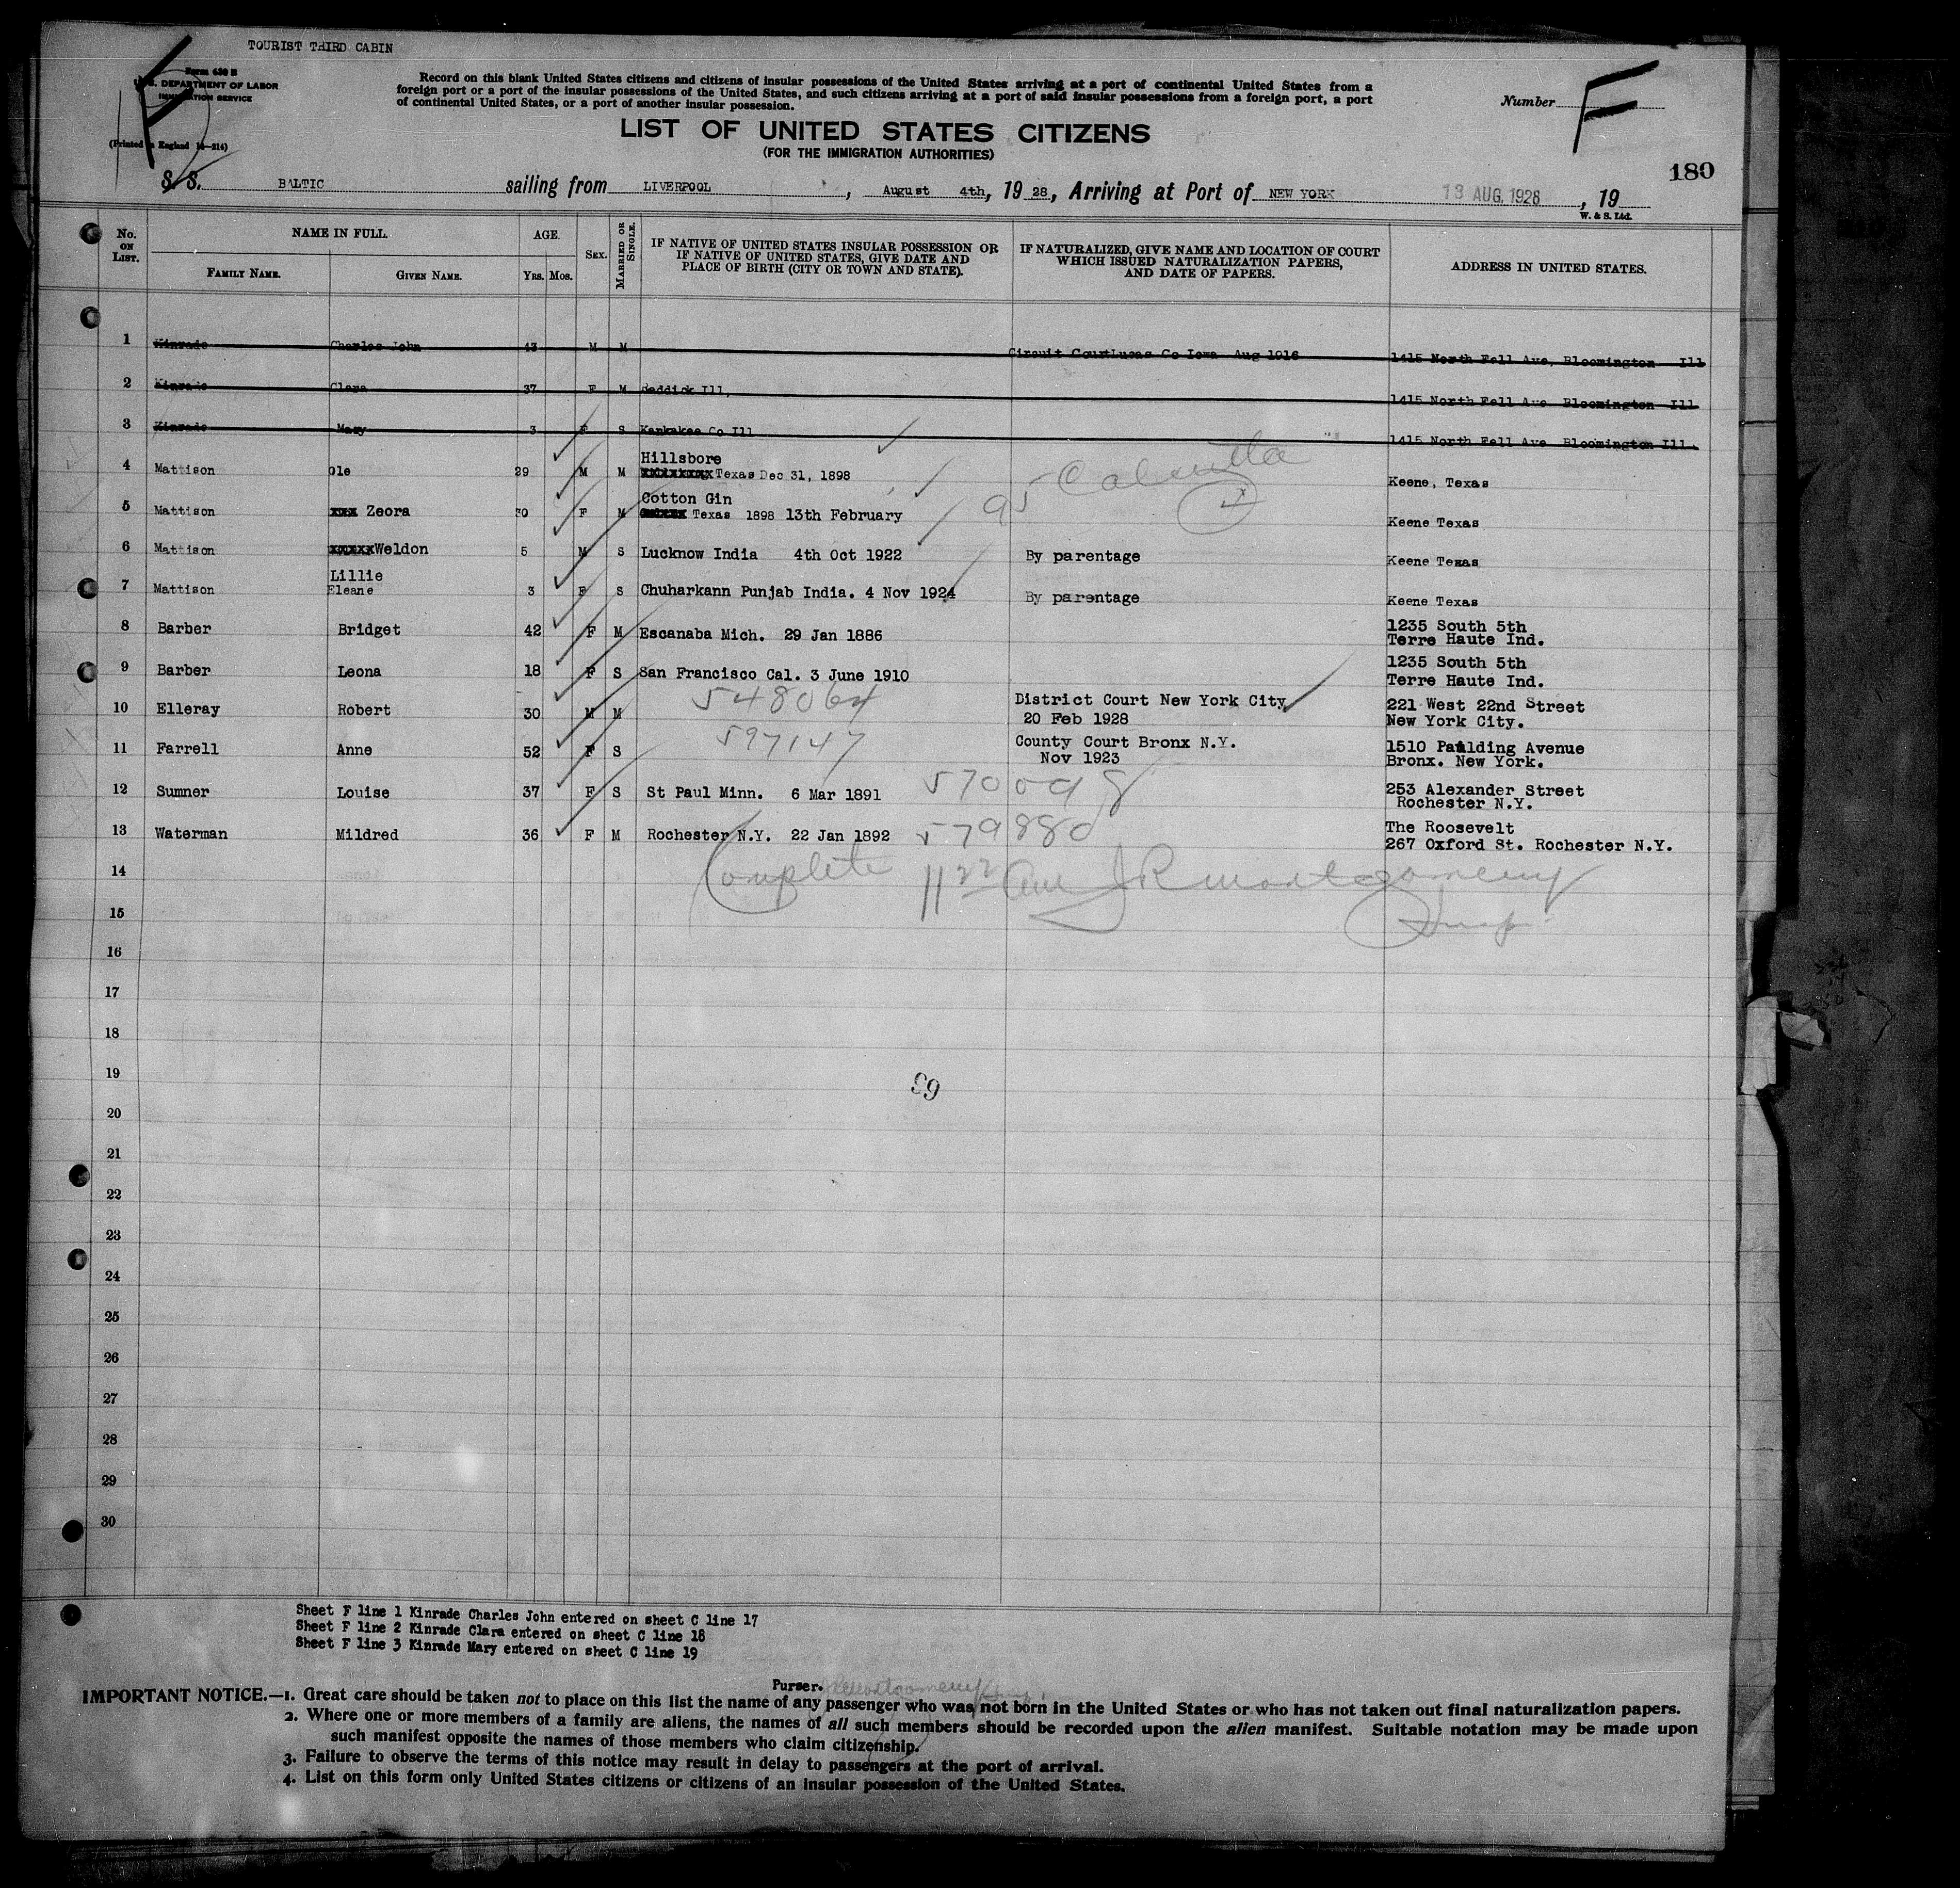 TOURIST THIRD CABIN
Form 630 B
U.S. DEPARTMENT OF LABOR
IMMIGRATION SERVICE
(Printed in England 14—214)
Record on this blank United States citizens and citizens of insular possessions of the United States arriving at a port of continental United States from a
foreign port or a port of the insular possessions of the United States, and such citizens arriving at a port of said insular possessions from a foreign port, a port
of continental United States, or a port of another insular possession.
Number F
LIST OF UNITED STATES CITIZENS
(FOR THE IMMIGRATION AUTHORITIES)
180
S. S. BALTIC sailing from LIVERPOOL, August 4th, 19 28, Arriving at Port of NEW YORK 13 AUG. 1928, 19
W. & S. Ltd.
No. ON LIST. NAME IN FULL. FAMILY NAME. GIVEN NAME. AGE. YRS. MOS. SEX. MARRIED OR SINGLE. IF NATIVE OF UNITED STATES INSULAR POSSESSION OR IF NATIVE OF UNITED STATES, GIVE DATE AND PLACE OF BIRTH (CITY OR TOWN AND STATE). IF NATURALIZED, GIVE NAME AND LOCATION OF COURT WHICH ISSUED NATURALIZATION PAPERS, AND DATE OF PAPERS. ADDRESS IN UNITED STATES.
1 Kinrade Charles John 43 M M Circuit CourtLucas Co Iowa Aug 1916 1415 North Fell Ave, Bloomington Ill
2 Kinrade Clara 37 F M Reddick Ill, 1415 North Fell Ave Bloomington Ill
3 Kinrade Mary 3 F S Kankakee Co Ill 1415 North Fell Ave Bloomington Ill.
Hillsbore
4 Mattison Ole 29 M M Texas Dec 31, 1898 Keene, Texas
Cotton Gin
5 Mattison Zeora 30 F M Texas 1898 13th February Keene Texas
95 Calcutta
6 Mattison Weldon 5 M S Lucknow India 4th Oct 1922 By parentage Keene Texas
Lillie
7 Mattison Eleane 3 F S Chuharkann Punjab India. 4 Nov 1924 By parentage Keene Texas
8 Barber Bridget 42 F M Escanaba Mich. 29 Jan 1886 1235 South 5th
Terre Haute Ind.
9 Barber Leona 18 F S San Francisco Cal. 3 June 1910 1235 South 5th
Terre Haute Ind.
10 Elleray Robert 30 M M 548064 District Court New York City 221 West 22nd Street
20 Feb 1928 New York City.
11 Farrell Anne 52 F S 597147 County Court Bronx N.Y. 1510 Paulding Avenue
Nov 1923 Bronx. New York.
12 Sumner Louise 37 F S St Paul Minn. 6 Mar 1891 570098 253 Alexander Street
Rochester N.Y.
13 Waterman Mildred 36 F M Rochester N.Y. 22 Jan 1892 579880 The Roosevelt
267 Oxford St. Rochester N.Y.
14 Complete 11 22 am J R Montgomery
15 Insp.
16
17
18
19
63
20
21
22
23
24
25
26
27
28
29
30
Sheet F line 1 Kinrade Charles John entered on sheet C line 17
Sheet F line 2 Kinrade Clara entered on sheet C line 18
Sheet F line 3 Kinrade Mary entered on sheet C line 19
Purser.
IMPORTANT NOTICE.—1. Great care should be taken not to place on this list the name of any passenger who was not born in the United States or who has not taken out final naturalization papers.
2. Where one or more members of a family are aliens, the names of all such members should be recorded upon the alien manifest. Suitable notation may be made upon
such manifest opposite the names of those members who claim citizenship.
3. Failure to observe the terms of this notice may result in delay to passengers at the port of arrival.
4. List on this form only United States citizens or citizens of an insular possession of the United States.